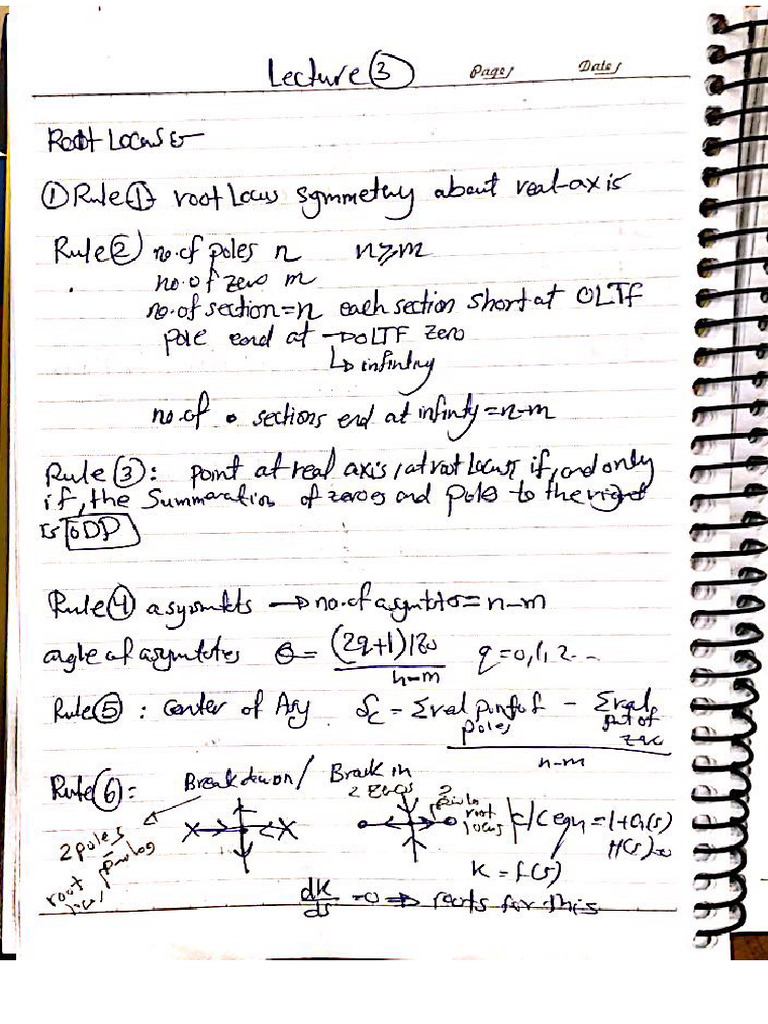 Lecture 3
Page:
Date:
Root Locus :-
① Rule ① root Locus symmethy about real-axis
Rule ② no.of poles n n≥m
no.of zero m
no.of section=n each section short at OLTF
pole eond at → OLTF zero
↳ infinitry
no.of sections end at infinty=n-m
Rule ③: point at real axis, at root Locus, if, and only
if, the Summeration of zeroes and poles to the right
is ODD
Rule ④ asymtets → no.of asymtotes = n-m
angle of asymtotes θ = (2q+1)180 / n-m q=0,1,2...
Rule ⑤: Center of Asy δc = Σreal part of poles - Σreal part of zeros / n-m
Rule ⑥: Break down / Break in
2 zeros
root locus
2 poles
root locus
c/c eqn = 1+G(s)
H(s)=0
K = f(s)
dK/ds =0 ⇒ roots for this